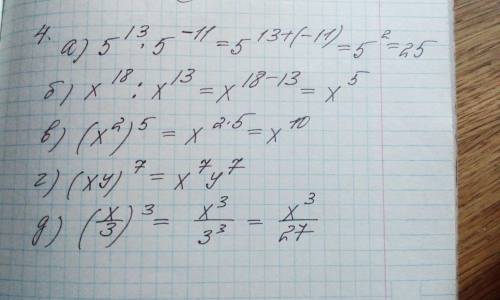 4.
а) 5¹³ · 5⁻¹¹ = 5¹³⁺⁽⁻¹¹⁾ = 5² = 25
б) x¹⁸ : x¹³ = x¹⁸⁻¹³ = x⁵
в) (x²)⁵ = x²˙⁵ = x¹⁰
г) (xy)⁷ = x⁷y⁷
д) (x/3)³ = x³/3³ = x³/27